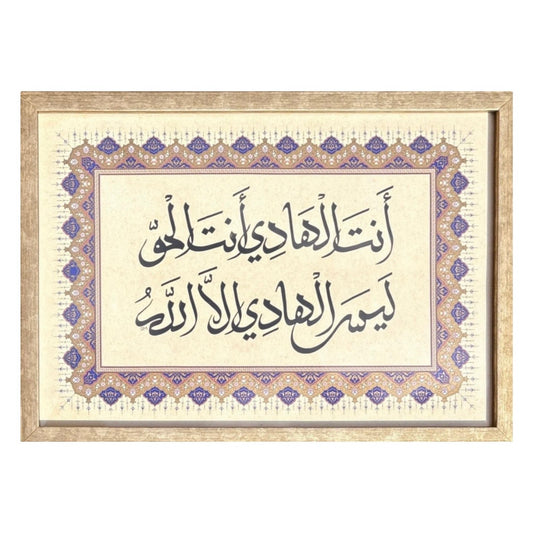 أَنتَ الْهَادِي أَنتَ الْحَقُّ
لَيْسَ الْهَادِي إِلَّا اللَّهُ